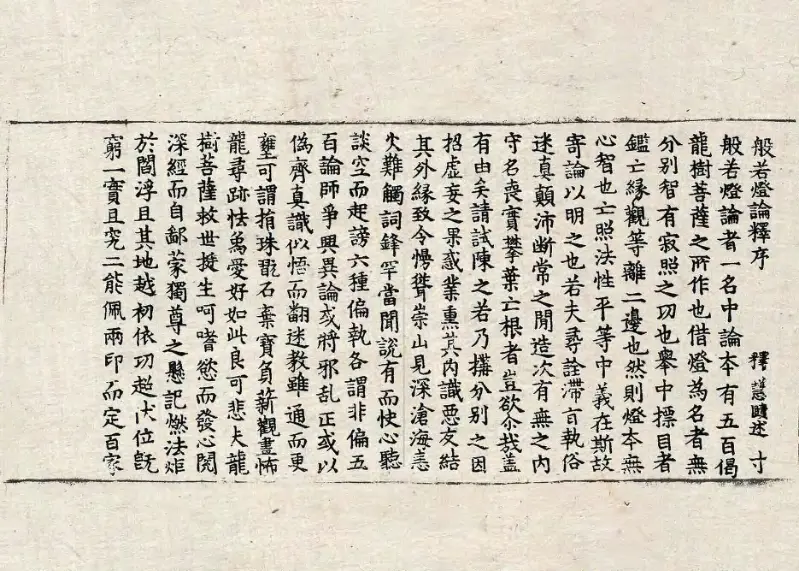 般若燈論釋序 釋慧賾述 寸
般若燈論者一名中論本有五百偈
龍樹菩薩之所作也借燈為名者無
分別智有寂照之功也舉中摽目者
鑑亡緣觀等離二邊也然則燈本無
心智也亡照法性平等中義在斯故
寄論以明之也若夫尋詮滯旨執俗
迷真顛沛斷常之閒造次有無之內
守名喪實攀葉亡根者豈欲尒哉蓋
有由矣請試陳之若乃搆分別之因
招虛妄之果惑業熏其內識惡友結
其外緣致令慢聳崇山見深滄海恚
火難觸詞鋒罕當聞說有而快心聽
談空而起謗六種偏執各謂非偏五
百論師爭興異論或將邪乱正或以
偽齊真識似悟而翻迷教雖通而更
壅可謂捐珠翫石棄寶負薪觀畫怖
龍尋跡怯象愛好如此良可悲夫龍
樹菩薩救世挺生呵嗜慾而發心閱
深經而自鄙蒙獨尊之懸記燃法炬
於閻浮且其地越初依功超伏位旣
窮一實且究二能佩兩印而定百家